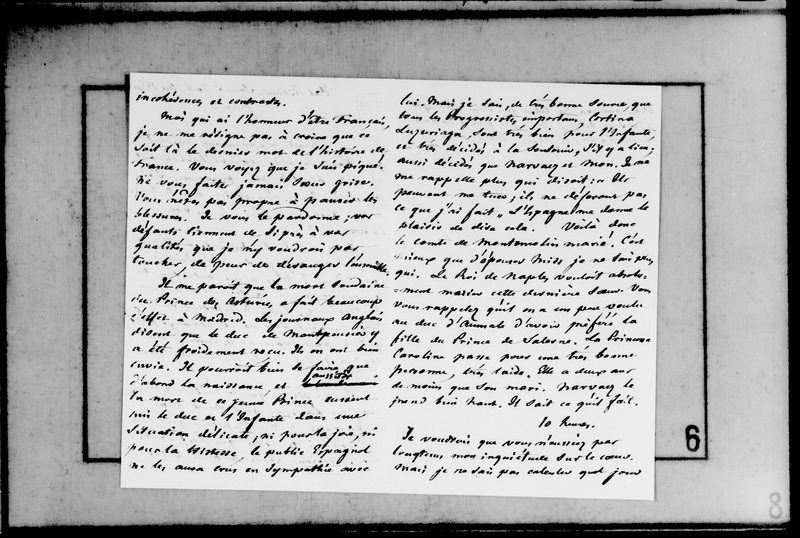 incohérences et contrastes.
Moi qui ai l'honneur d'être Français,
je ne me résigne pas à croire que ce
soit là le dernier mot de l'histoire de
France. Vous voyez que je suis piqué.
Ne vous faites jamais sœur grise.
Vous n'êtes pas propre à panser les
blessures. Je vous le pardonne ; vos
défauts tiennent de si près à vos
qualités que je n'y voudrois pas
toucher, de peur de déranger l'ensemble.
Il me paroit que la mort soudaine
du Prince des Asturies a fait beaucoup
d'effet à Madrid. Les journaux Anglais
disent que le duc de Montpensier y
a été froidement reçu. Ils en ont bien
envie. Il pourroit bien se faire que
d'abord la naissance, et aussitôt
la mort de ce jeune Prince eussent
mis le duc et l'Infante dans une
situation délicate, ni pour la joie, ni
pour la tristesse, le public Espagnol
ne les aura crus en sympathie avec
lui. Mais je sais, de très bonne source, que
tous les Progressistes importans, Cortina
Luzuriaga, sont très bien pour l'Infante,
et très décidés à la soutenir, s'il y a lieu ;
aussi décidés que Narvaez et Mon. Je ne
me rappelle plus qui disoit : " Ils
peuvent me tuer ; ils ne déferont pas
ce que j'ai fait " L'Espagne me donne le
plaisir de dire cela. Voilà donc
le comte de Montemolin marié. C'est
mieux que d'épouser Miss je ne sais plus
qui. Le Roi de Naples vouloit absolu-
-ment marier cette dernière sœur. Vous
vous rappelez qu'il en a un peu voulu
au duc d'Aumale d'avoir préféré la
fille du Prince de Salerne. La Princesse
Caroline passe pour une très bonne
personne, très laide. Elle a deux ans
de moins que son mari. Narvaez le
prend bien haut. Il sait ce qu'il fait.
10 heures.
Je voudrois que vous n'eussiez pas
longtems mon inquiétude sur le cœur.
Mais je ne sais pas calculer quel jour
6
8